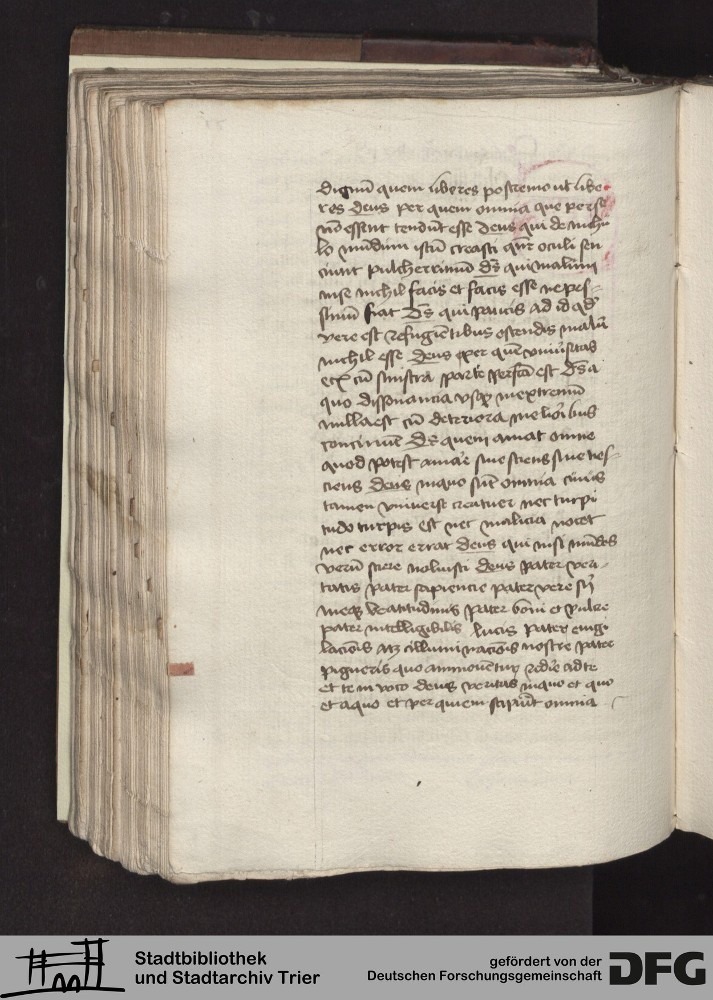 dignū quem liberes postremo ut libe-
res deus per quem omnia que per se
nō essent tendūt esse deus qui de nichi-
lo mūdum istū creasti quē oculi sen
ciunt pulcherrimū ds̄ qui malum
nichil facis et facis esse ne pes-
simū fiat Ds̄ qui paucis ad id qd̄
vere est refugientibus ostendis malū
nichil esse deus per quē vniūsitas
ecīa cū sinistra parte perfcā est ds̄ a
quo dissonancia vsqꝫ in extremū
nulla est cū deteriora meliōibus
concinūt Ds̄ quem amat omne
quod potest amāe siue sciens siue nes-
ciens deus in quo sūt omnia cuiꝰ
tamen vniuerse creature nec turpi
tudo turpis est nec malicia nocet
nec error errat deus qui nisi mūdos
verū scire noluisti deus pater veri-
tatis pater sapiencie pater vere sū
meqꝫ beatitudinis pater boni et pulcre
pater intelligibilis lucis pater euigi
lacōis atqꝫ illuminacōis nostre pater
pigneris quo ammonētur redīe ad te
et te in voco deus veritas in quo et quo
et a quo et per quem sapiūt omnia
Stadtbibliothek
und Stadtarchiv Trier
gefördert von der
Deutschen Forschungsgemeinschaft DFG